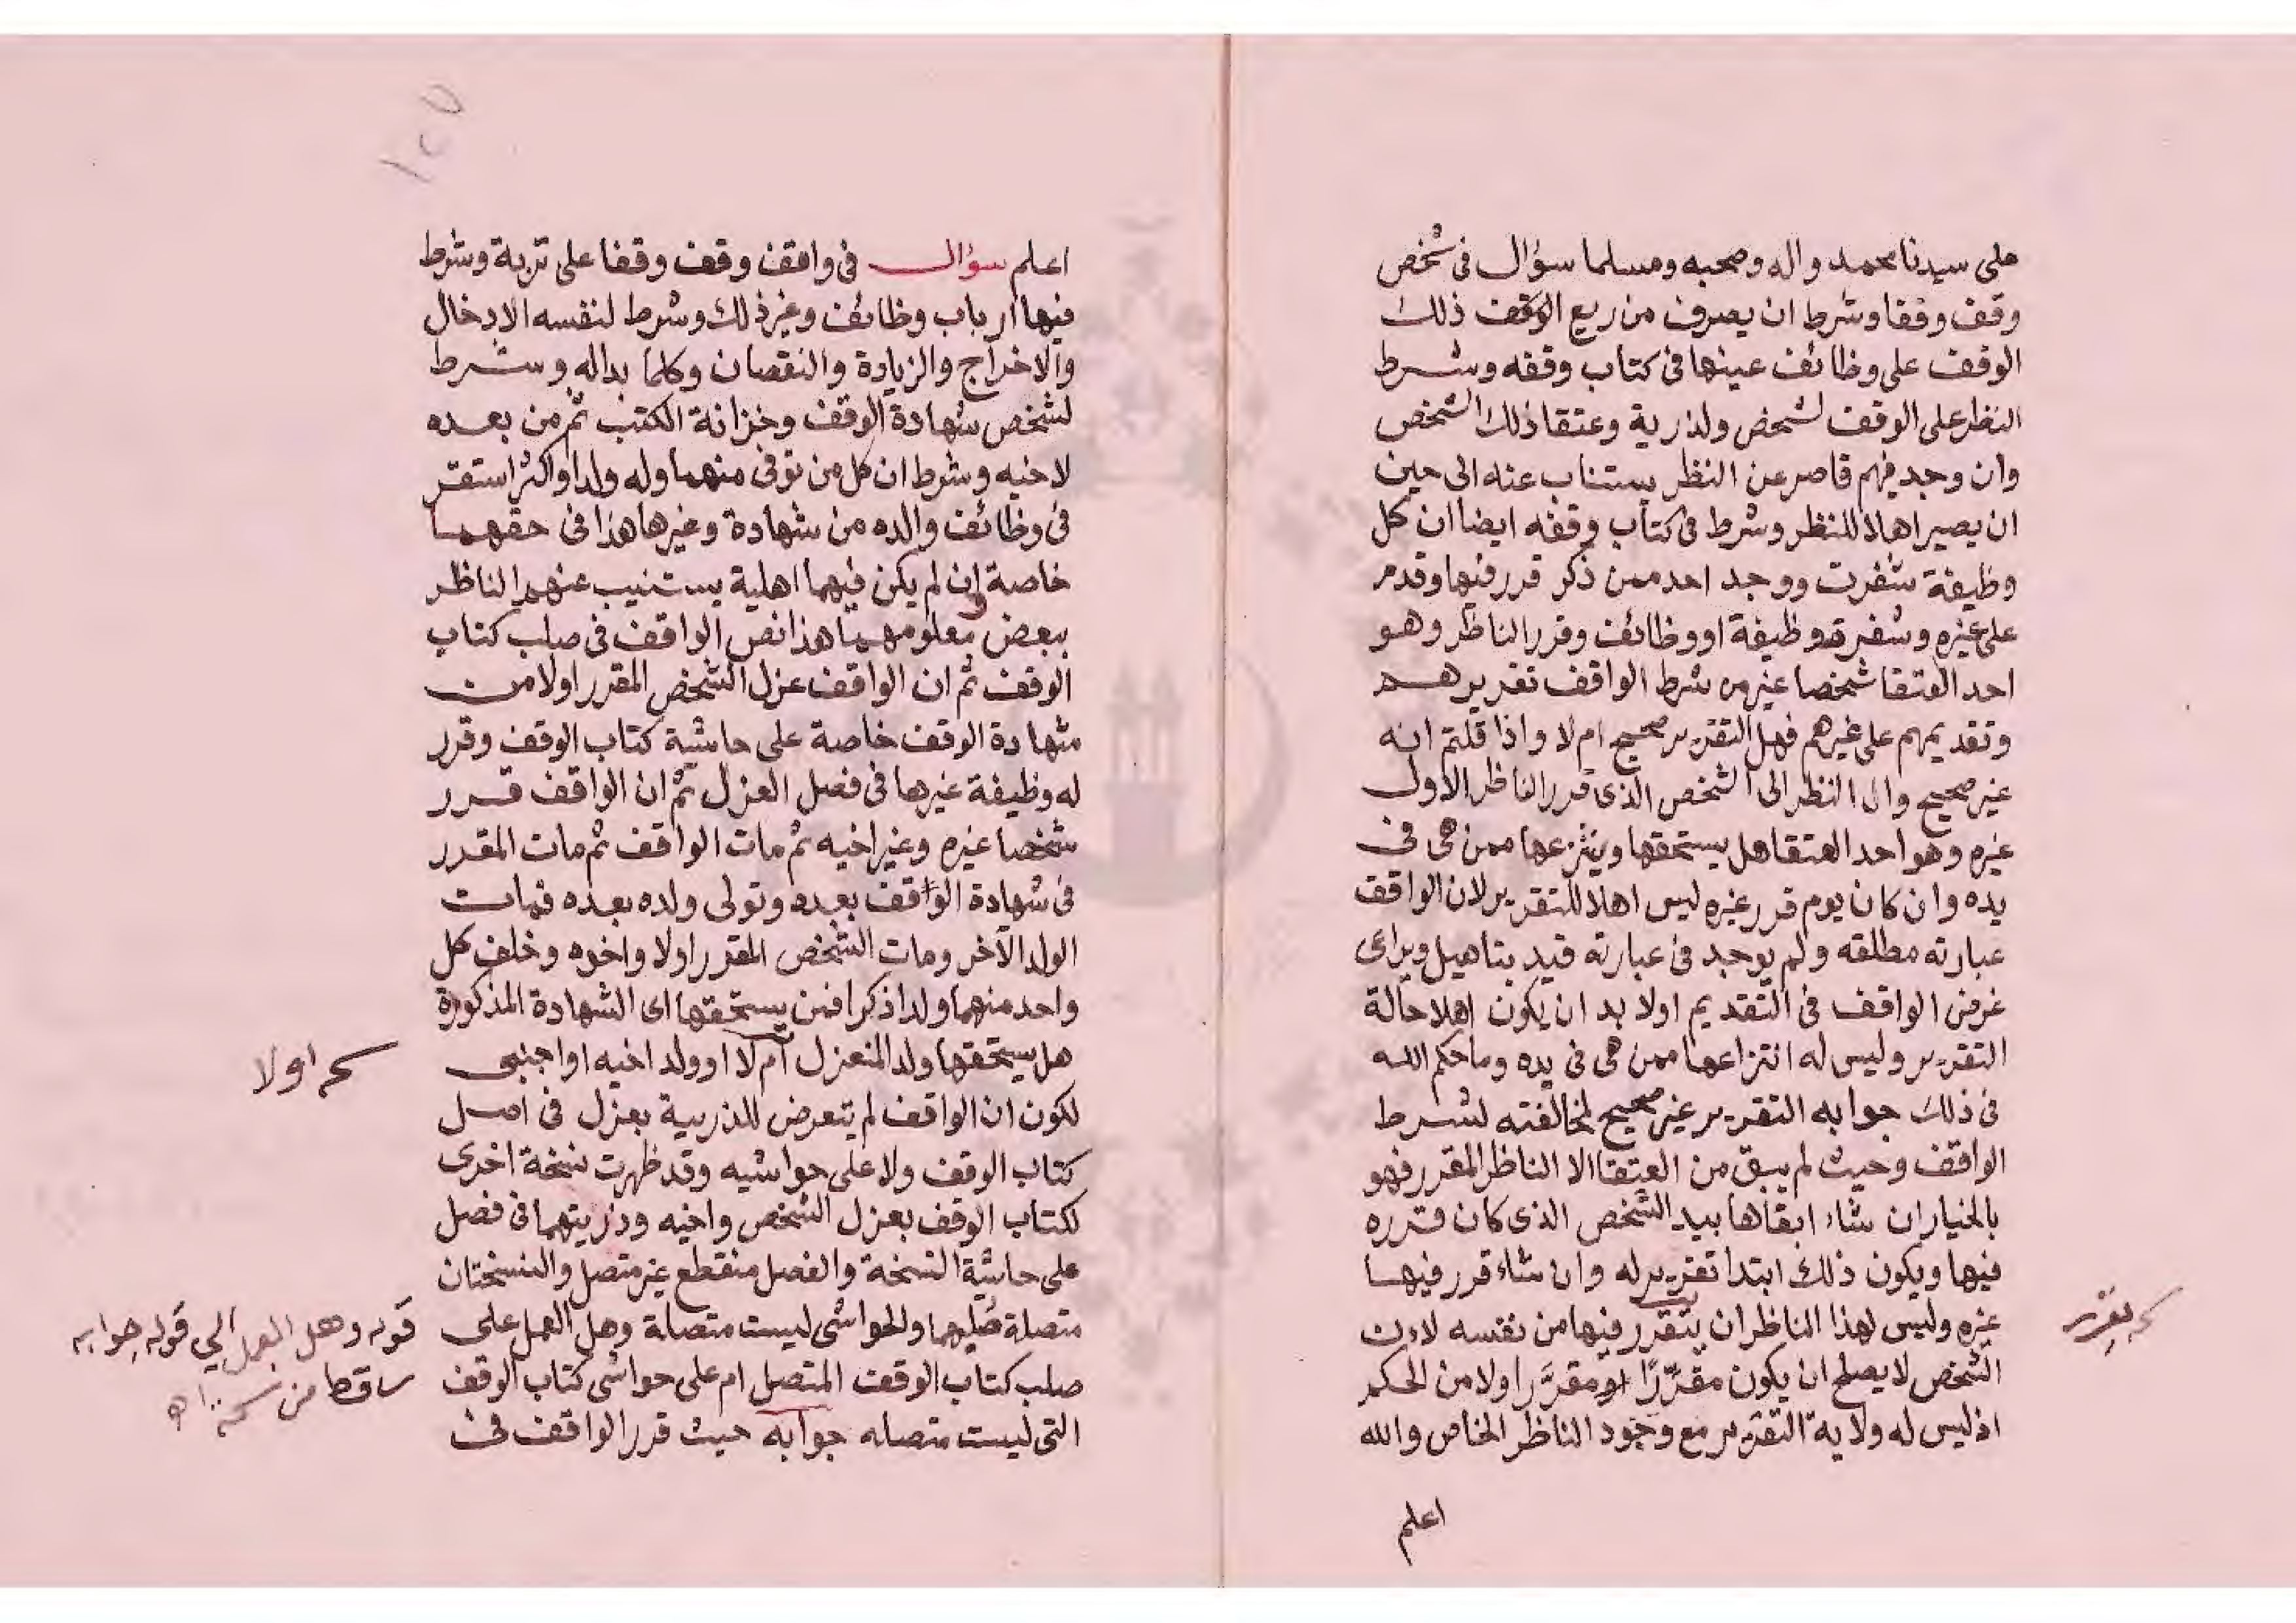 على سيدنا محمد واله وصحبه ومسلما سؤال فى شخص
وقف وقفا وشرط ان يصرف من ريع الوقف ذلك
الوقف على وظائف عينها فى كتاب وقفه وشرط
النظر على الوقف لشخص ولذرية وعتقا ذلك الشخص
وان وجد فيهم قاصر عن النظر يستناب عنه الى حين
ان يصير اهلا للنظر وشرط فى كتاب وقفه ايضا ان كل
وظيفة شغرت ووجد احد ممن ذكر قرر فيها وقدم
على غيره وشغرت وظيفة او وظائف وقرر الناظر وهو
احد العتقا شخصا غير من شرط الواقف تقريرهم
وتقديمهم على غيرهم فهل التقرير صحيح ام لا واذا قلتم انه
غير صحيح وال النظر الى الشخص الذى قرر الناظر الاول
غيره وهو احد العتقا هل يستحقها وينتزعها ممن هى فى
يده وان كان يوم قرر غيره ليس اهلا للتقرير لان الواقف
عبارته مطلقه ولم يوجد فى عبارته قيد بتاهيل ويراعى
غرض الواقف فى التقديم اولا بد ان يكون اهلا حالة
التقرير وليس له انتزاعها ممن هى فى يده وما حكم الله
فى ذلك جوابه التقرير غير صحيح لمخالفته لشرط
الواقف وحيث لم يبق من العتقا الا الناظر المقرر فهو
بالخيار ان شاء ابقاها بيد الشخص الذى كان قرره
فيها ويكون ذلك ابتدا تقرير له وان شاء قرر فيها
غيره وليس لهذا الناظر ان يتقرر فيها من نفسه لان
الشخص لا يصلح ان يكون مقرِّرًا او مقرَّرا ولا من الحكم
اذ ليس له ولاية التقرير مع وجود الناظر الخاص والله
اعلم
تقرر
١٢٧
اعلم سؤال فى واقف وقف وقفا على تربة وشرط
فيها ارباب وظائف وغير ذلك وشرط لنفسه الادخال
والاخراج والزيادة والنقصان وكلما بداله وشرط
لشخص شهادة الوقف وخزانة الكتب ثم من بعده
لاخيه وشرط ان كل من توفى منهما وله ولد او اكثر استقر
فى وظائف والده من شهادة وغيرها هذا فى حقهما
خاصة وان لم يكن فيهما اهلية يستنيب عنهم الناظر
ببعض معلومهما هذا نص الواقف فى صلب كتاب
الوقف ثم ان الواقف عزل الشخص المقرر اولا من
شهادة الوقف خاصة على حاشية كتاب الوقف وقرر
له وظيفة غيرها فى فصل العزل ثم ان الواقف قرر
شخصا غيره وغير اخيه ثم مات الواقف ثم مات المقرر
فى شهادة الواقف بعده وتولى ولده بعده فمات
الولد الآخر ومات الشخص المقرر اولا واخوه وخلف كل
واحد منهما ولدا ذكرا فمن يستحقها اى الشهادة المذكورة
هل يستحقها ولد المنعزل ام لا او ولد اخيه او اجنبى
لكون ان الواقف لم يتعرض للذرية بعزل فى اصل
كتاب الوقف ولا على حواشيه وقد ظهرت نسخة اخرى
لكتاب الوقف بعزل الشخص واخيه وذريتهما فى فصل
على حاشية النسخة والفصل منقطع غير متصل والنسختان
متصلة صلبهما والحواشى ليست متصلة وهل العمل على
صلب كتاب الوقف المتصل ام على حواشى كتاب الوقف
التى ليست متصله جوابه حيث قرر الواقف فى
اولا
قوله وهل العمل الي قوله جوابه
ساقط من نسخة اه